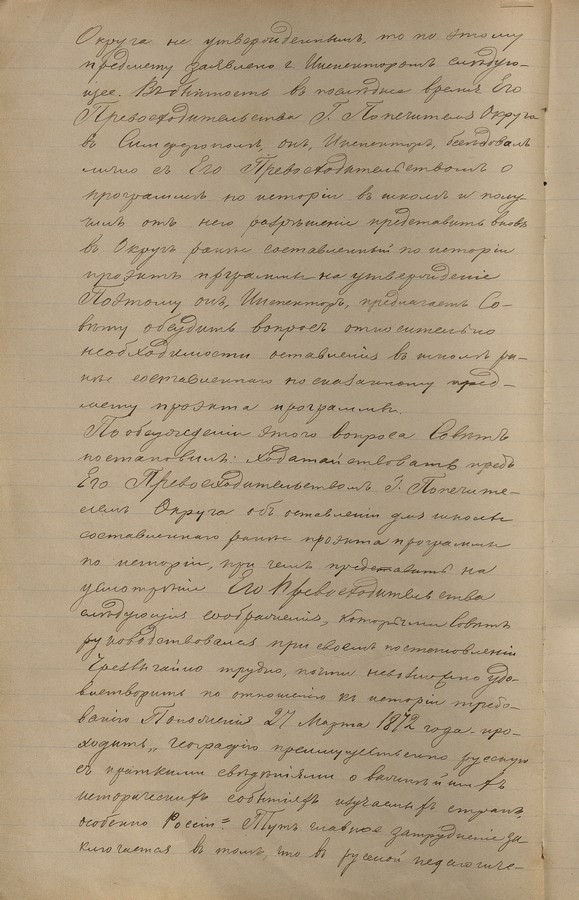 Округа не утвержденнымъ, то по этому
предмету заявлено г. Инспекторомъ слѣдую-
щее. Въ бытность въ послѣднее время Его
Превосходительства Г. Попечителя Округа
въ Симферополѣ, онъ, Инспекторъ, бесѣдовалъ
лично съ Его Превосходительствомъ о
программѣ по исторіи въ школѣ и полу-
чилъ отъ него разрѣшеніе представить вновь
въ Округъ ранѣе составленный по исторіи
проэктъ программы на утвержденіе
Поэтому онъ, Инспекторъ, предлагаетъ Со-
вѣту обсудить вопросъ относительно
необходимости оставленія въ школѣ ра-
нѣе составленнаго по сказанному пред-
мету проэкта программы.
По обсужденіи этого вопроса Совѣтъ
постановилъ: ходатайствовать предъ
Его Превосходительствомъ Г. Попечите-
лемъ Округа объ оставленіи для школы
составленнаго ранѣе проэкта программы
по исторіи, при чемъ представить на
усмотрѣніе Его Превосходительства
слѣдующія соображенія, которыми Совѣтъ
руководствовался при своемъ постановленіи
Чрезвычайно трудно, почти невозможно удо-
влетворить по отношенію къ исторіи требо-
ванію Положенія 27 Марта 1872 года - про-
ходить „географію преимущественно русскую
съ краткими свѣдѣніями о важнѣйшихъ
историческихъ событіяхъ изучаемыхъ странъ,
особенно Россіи". Тутъ главное затрудненіе за-
ключается въ томъ, что въ русской педагогиче-